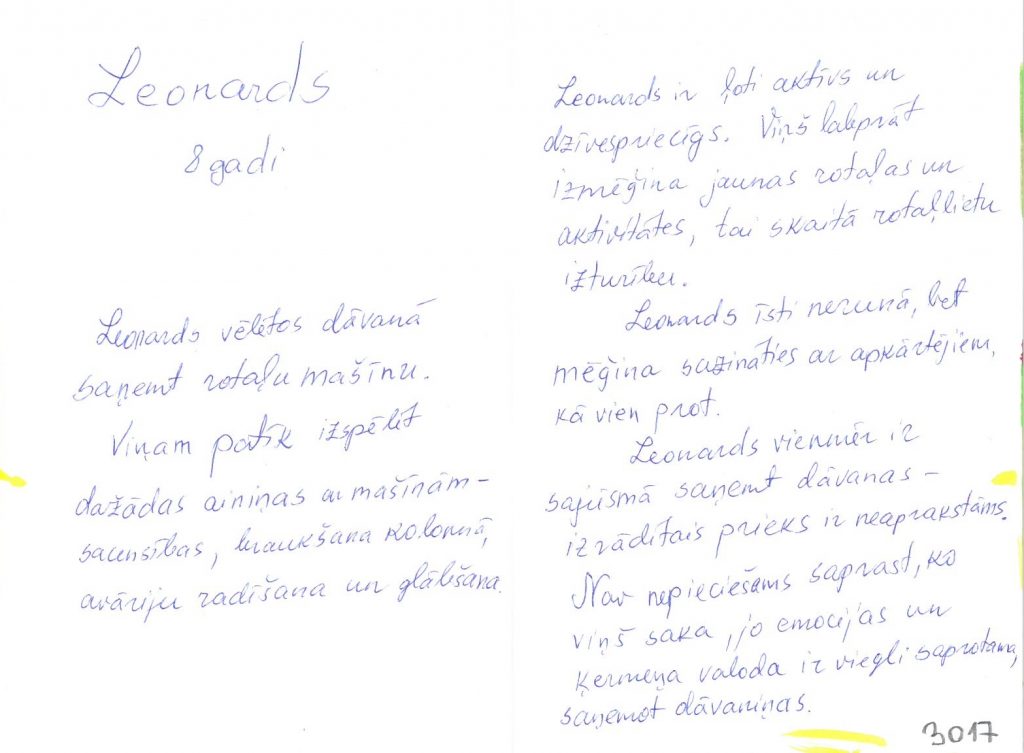 Leonards
8 gadi
Leonards vēlētos dāvanā
saņemt rotaļu mašīnu.
Viņam patīk izspēlēt
dažādas ainiņas ar mašīnām –
sacensības, braukšana kolonnā,
avāriju radīšana un glābšana.
Leonards ir ļoti aktīvs un
dzīvespriecīgs. Viņš labprāt
izmēģina jaunas rotaļas un
aktivitātes, tai skaitā rotaļlietu
izturību.
Leonards īsti nerunā, bet
mēģina sazināties ar apkārtējiem,
kā vien prot.
Leonards vienmēr ir
sajūsmā saņemt dāvanas –
izrādītais prieks ir neaprakstāms.
Nav nepieciešams saprast, ko
viņš saka, jo emocijas un
ķermeņa valoda ir viegli saprotama,
saņemot dāvaniņas.
3017